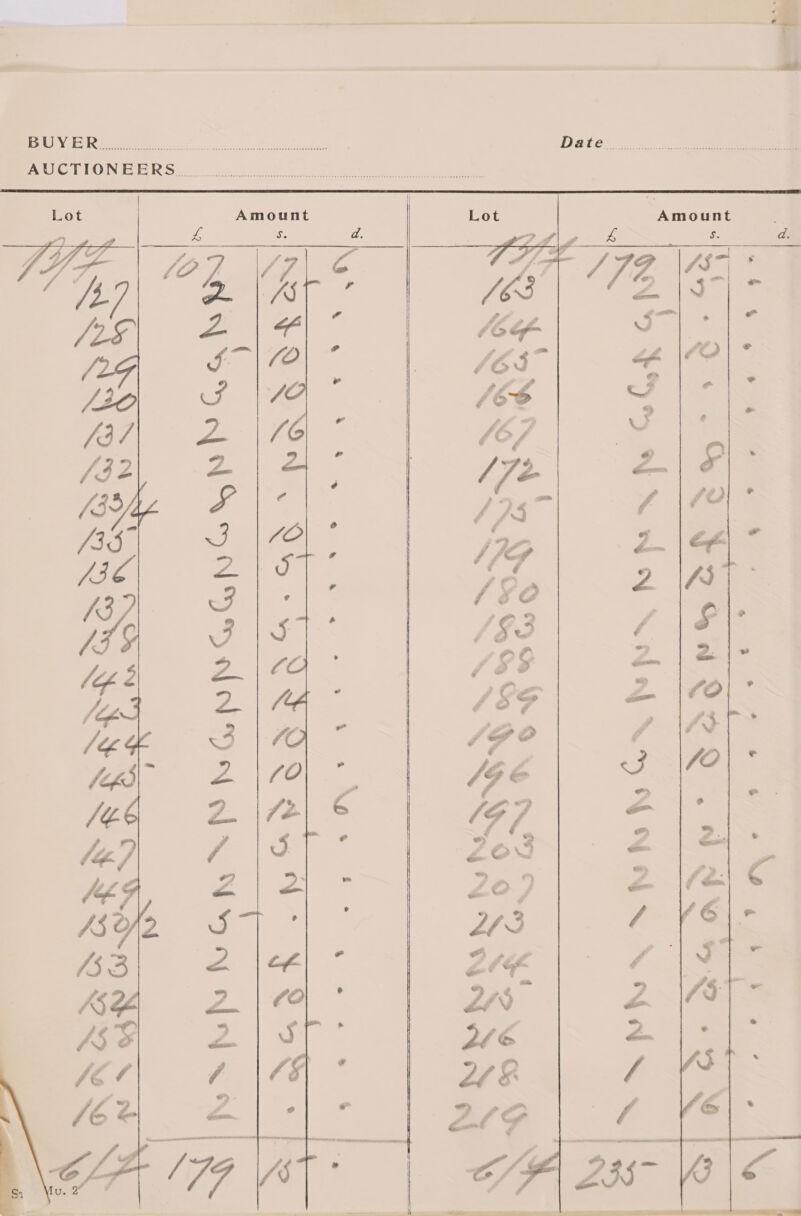 BUYER
Date
AUCTIONEERS
Lot Amount
£ s. d.
B/F 107 17 6
127 2 15 "
128 2 4 "
129 5 10 "
130 3 10 "
131 2 16 "
132 2 2 "
133/4 8 " "
135 3 10 "
136 2 5 "
137 3 " "
138 3 5 "
142 2 10 "
143 2 14 "
144 3 10 "
145 2 10 "
146 2 12 6
147 1 5 "
149 2 2 "
150/2 5 " "
153 2 4 "
154 2 10 "
158 2 5 "
161 1 18 "
162 2 " "
C/F 179 15 "
Lot Amount
£ s. d.
B/F 179 15 "
163 2 5 "
164 5 " "
165 4 10 "
166 3 " "
167 3 " "
172 2 8 "
175 1 10 "
179 2 4 "
180 2 15 "
183 1 8 "
188 2 2 "
189 2 10 "
190 1 15 "
196 3 10 "
197 2 " "
203 2 2 "
207 2 12 6
213 1 16 "
214 1 5 "
215 2 15 "
216 2 " "
218 1 15 "
219 1 16 "
C/F 235 13 6